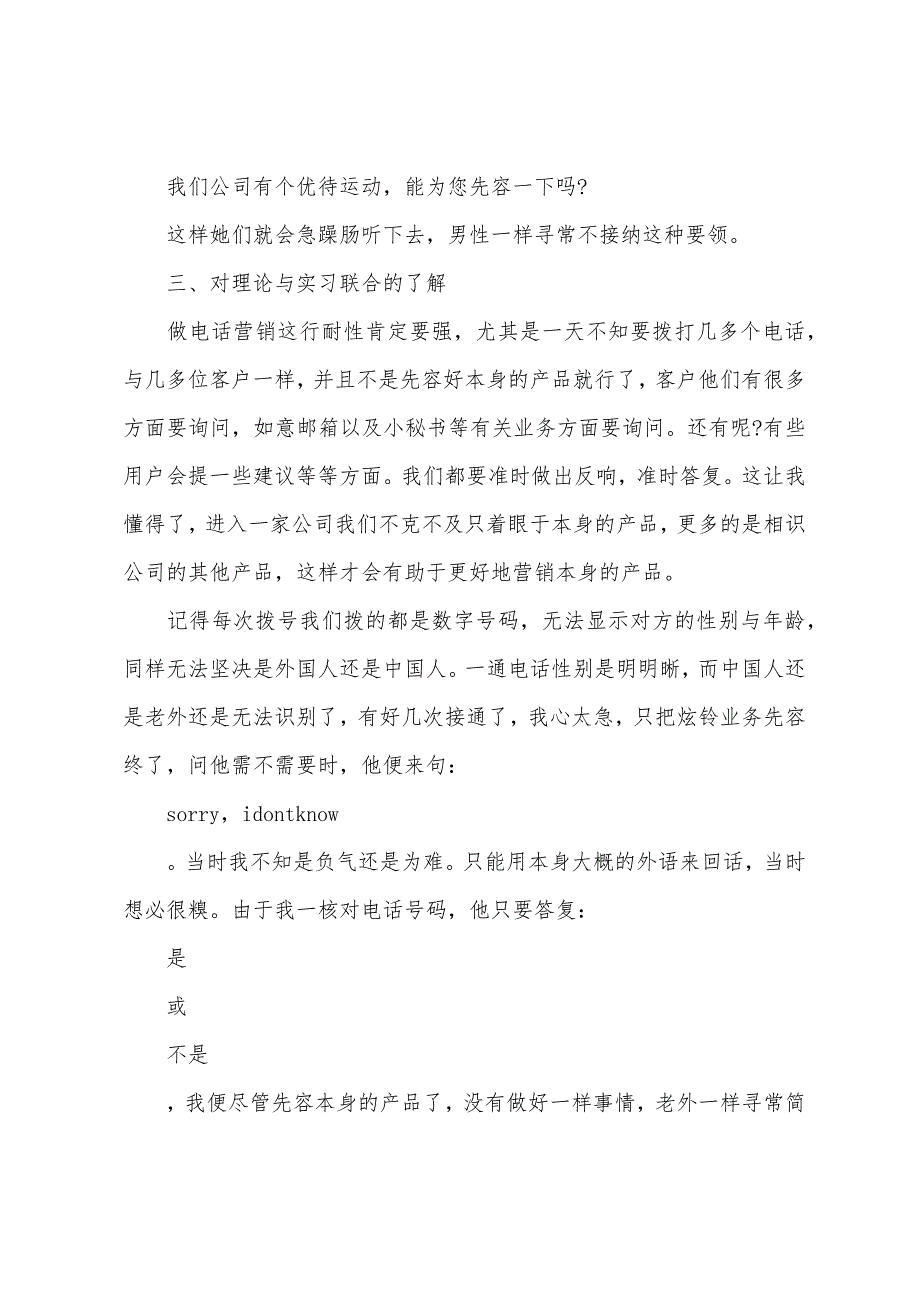 我们公司有个优待运动，能为您先容一下吗?
这样她们就会急躁肠听下去，男性一样寻常不接纳这种要领。
三、对理论与实习联合的了解
做电话营销这行耐性肯定要强，尤其是一天不知要拨打几多个电话，
与几多位客户一样，并且不是先容好本身的产品就行了，客户他们有很多
方面要询问，如意邮箱以及小秘书等有关业务方面要询问。还有呢?有些
用户会提一些建议等等方面。我们都要准时做出反响，准时答复。这让我
懂得了，进入一家公司我们不克不及只着眼于本身的产品，更多的是相识
公司的其他产品，这样才会有助于更好地营销本身的产品。
记得每次拨号我们拨的都是数字号码，无法显示对方的性别与年龄，
同样无法坚决是外国人还是中国人。一通电话性别是明明晰，而中国人还
是老外还是无法识别了，有好几次接通了，我心太急，只把炫铃业务先容
终了，问他需不需要时，他便来句：
sorry，idontknow
。当时我不知是负气还是为难。只能用本身大概的外语来回话，当时
想必很糗。由于我一核对电话号码，他只要答复：
是
或
不是
，我便尽管先容本身的产品了，没有做好一样事情，老外一样寻常简